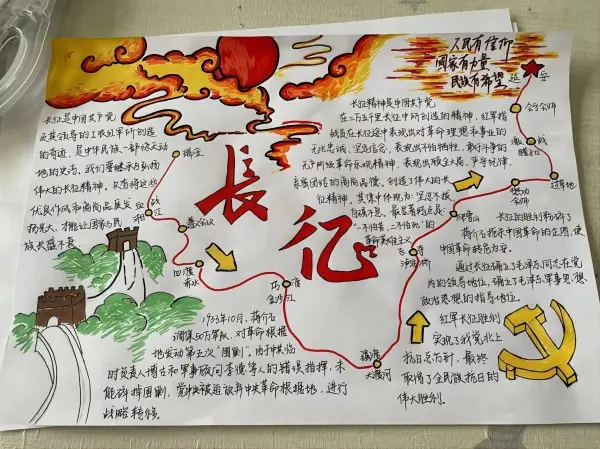 人民有信仰
国家有力量
民族有希望
长征是中国共产党
及其领导的工农红军所创造
的奇迹，是中华民族一部惊天动
地的史诗，我们要继承与弘扬
伟大的长征精神。只有将这些
优良作风和高尚品质发
扬光大，才能让国家与民
族长盛不衰
长征精神是中国共产党
在二万五千里长征中所创造的精神，红军指
战员在长征途中表现出对革命理想和事业的
无比忠诚、坚定信念，表现出不怕牺牲、敢于斗争的
无产阶级革命乐观精神，表现出顾全大局、严守纪律、
亲密团结的高尚品德，创造了伟大的长
征精神。其集中体现为：坚忍不拔、
自强不息。最显著特点是：
“一不怕苦、二不怕死”的
革命英雄主义
長征
瑞金
血战
湘江
遵义会议
四渡
赤水
巧渡
金沙江
强渡
大渡河
飞夺
泸定桥
爬雪山
过草地
懋功
会师
激战
腊子口
会宁会师
延安
长征的胜利粉碎了
蒋介石指示中国革命的企图，使
中国革命转危为安。
通过长征确立了毛泽东同志在党
内的领导地位，确立了毛泽东军事思想、
政治思想的指导地位。
红军长征胜利
实现了我党北上
抗日总方针，最终
取得了全民族抗日的
伟大胜利。
1933年10月，蒋介石
调集50万军队，对革命根据
地发动第五次“围剿”。由于中共临
时负责人博古和军事顾问李德等人的错误指挥，未
能碎掉围剿，党中央被迫放弃中央革命根据地，进行
战略转移。